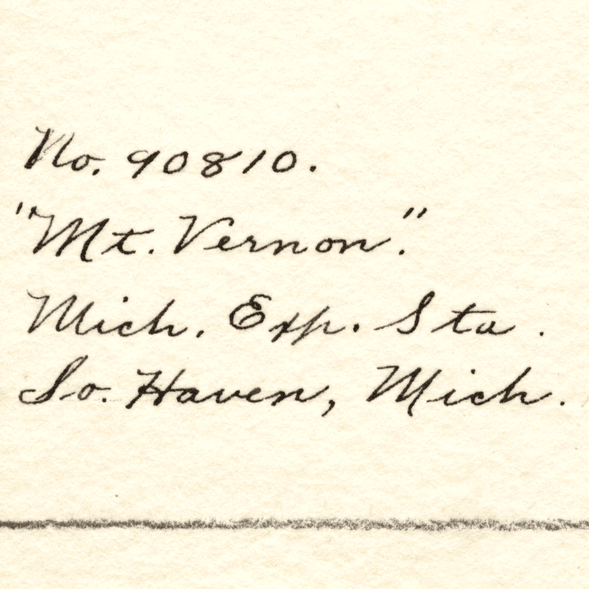 No. 90810.
"Mt. Vernon".
Mich. Exp. Sta.
So. Haven, Mich.